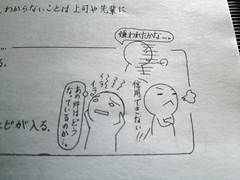 わからないことは上司や先輩に
嫌われたかな…。
イライラ
あの件はどう
なっているのか。
信用できない
ビが入る。
る。